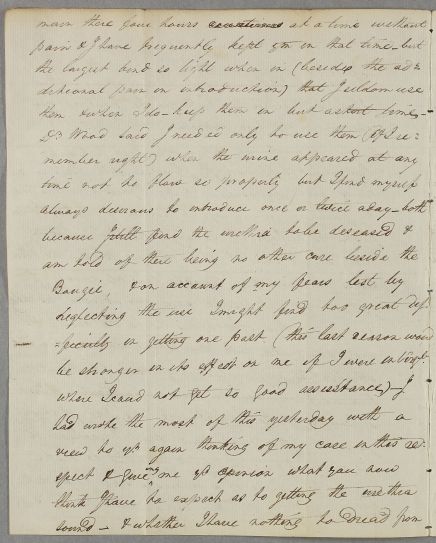 main there four hours at a time without
pain & I have frequently kept ym in that time, but
the largest bind so tight when in (besides the ad=
ditional pain on introduction) that I seldom use
them & when I do keep them in but a short time,
Dr. Wood said I needed only to use them (if I re=
member right) when the urine appeared at any
time not to flow so properly but I find myself
always desirous to introduce once or twice a day – both
because I still find the urethra to be diseased &
am told of there being no other cure beside the
Bougie, & on account of my fears lest by
neglecting the use I might find too great dif
=ficulty in getting one past (this last reason would
be stronger in its effect on me if I were in
where I coud not get so good assistance) – I
had wrote the most of this yesterday with a
view to yr again thinking of my case in this re=
spect & giveing me yr opinion what you now
think I have to expect as to getting the urethra
sound – & whether I have nothing to dread from